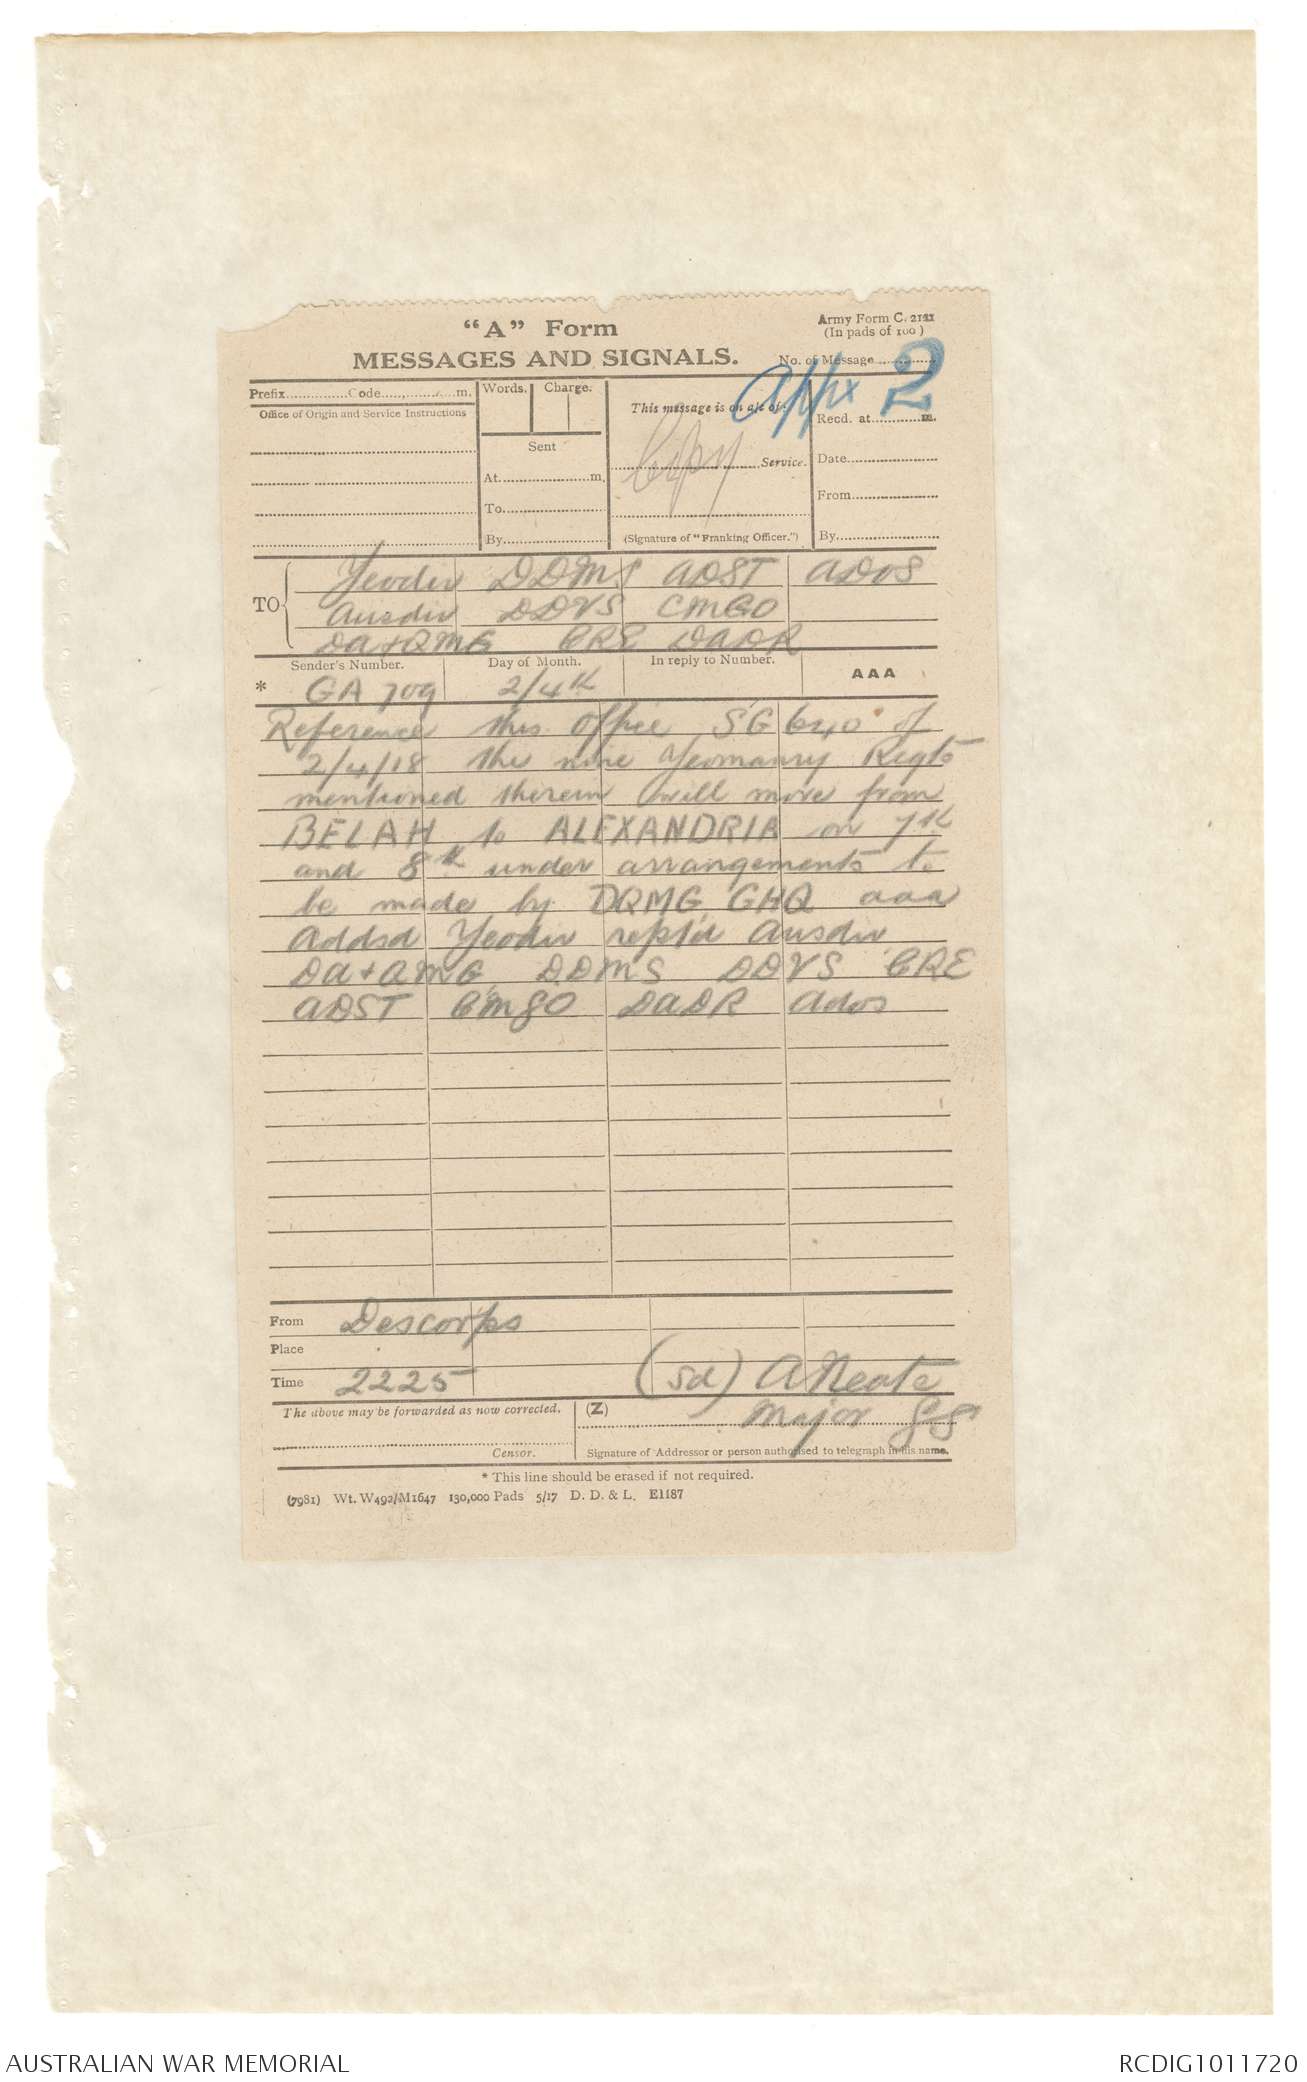 "A" Form
Army Form C. 2121
(In pads of 100)
MESSAGES AND SIGNALS.
No. of Message
Appx 2
Prefix Code m.
Words. Charge.
This message is on a/c of:
Recd. at m.
Office of Origin and Service Instructions
Sent
Copy
Service.
Date
At m.
From
To
By
(Signature of "Franking Officer.")
By
TO
Yeodiv DDMS ADST ADOS
Ausdiv DDVS CMGO
DA+QMG CRE DADR
Sender's Number. Day of Month. In reply to Number. AAA
* GA 709 2/4th
Reference this office SG 640 of
2/4/18 the nine Yeomanry Regts
mentioned therein will move from
BELAH to ALEXANDRIA on 7th
and 8th under arrangements to
be made by DQMG GHQ aaa
Addsd Yeodiv reptd Ausdiv
DA+QMG DDMS DDVS CRE
ADST CMGO DADR Ados
From Descorps
Place
Time 2225
(sd) A Neate
Major GS
The above may be forwarded as now corrected. (Z)
Censor. Signature of Addressor or person authorised to telegraph in his name.
* This line should be erased if not required.
(7981) Wt. W492/M1647 130,000 Pads 5/17 D. D. & L. E1187
AUSTRALIAN WAR MEMORIAL
RCDIG1011720